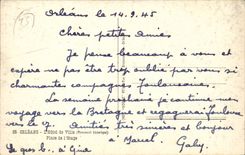 Orléans le 14.9.45
Chères petites amies
Je pense beaucoup à vous et
espère ne pas être trop oublié par vous si
charmantes compagnes Toulousaines.
La semaine prochaine je continue mon
voyage vers la Bretagne et regagnerai Toulouse
vers le
Amitiés très sincères et bonjour
à Gine
Gaby.
ORLÉANS - L'Hôtel de Ville
Place de l'Étape